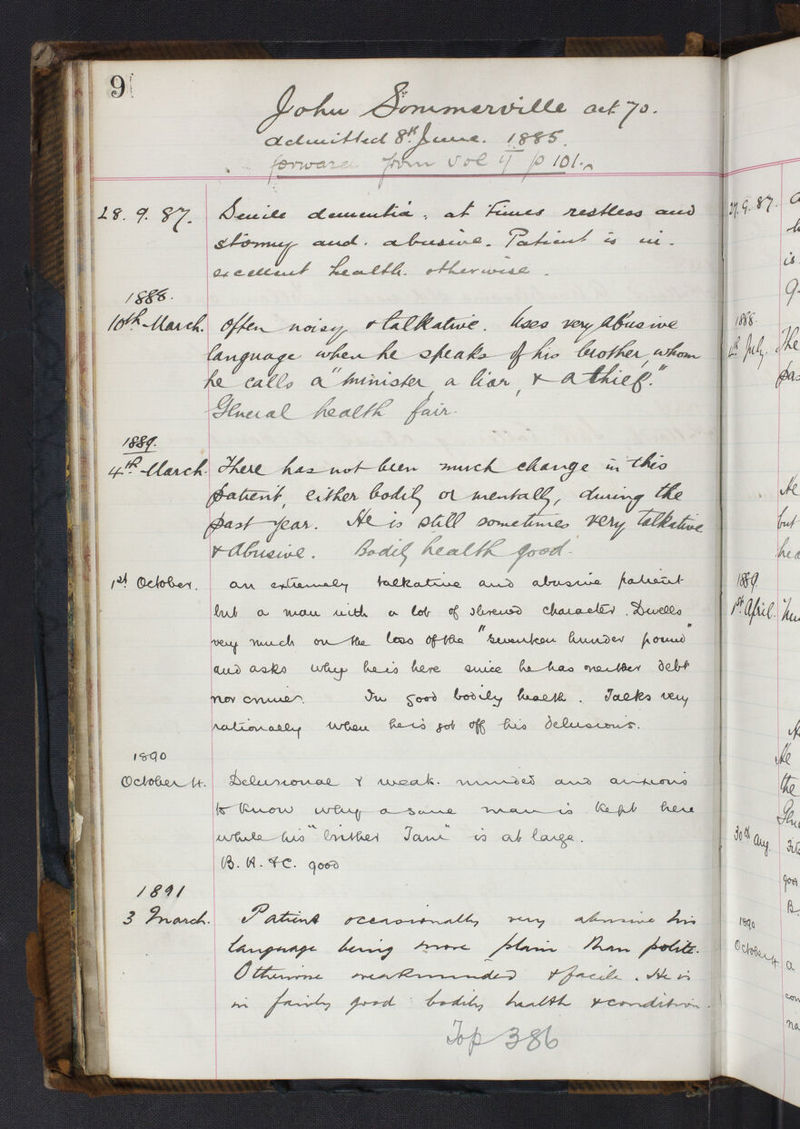 9
John Sommerville aet 70.
admitted 8th June. 1885.
forward from Vol p 101.
28. 9. 87. Senile dementia, at times restless and
stormy and abusive. Patient is in
excellent health otherwise.
1888.
10th March. Often noisy & talkative. Uses very abusive
language when he speaks of his brother, whom
he calls a "minister, a liar, & a thief."
General health fair.
1889.
4th March. There has not been much change in this
patient, either bodily or mentally, during the
past year. He is still sometimes very talkative
& abusive. Bodily health good.
1st October. an extremely talkative and abusive patient
but a man with a lot of shrewd character. Dwells
very much on the loss of the "seventeen hunder pound"
and asks why he is here since he has neither debt
nor crime. In good bodily health. Talks very
rationally when he is got off his delusions.
1890
October 4. Delusional & weak-minded and anxious
to know why a sane man is kept here
while his "brither Tam" is at large.
B. H. & C. good
1891
3 March. Patient occasionally very abusive his
language being more plain than polite.
Otherwise weakminded & facile. He is
in fairly good bodily health & condition.
To p 386
27. 9. 87.
is
1888
4th July. The
pas
He
but
hea
1889
1st April.
He
the
30th Aug.
good
B.
1890
October 4
a
con
na